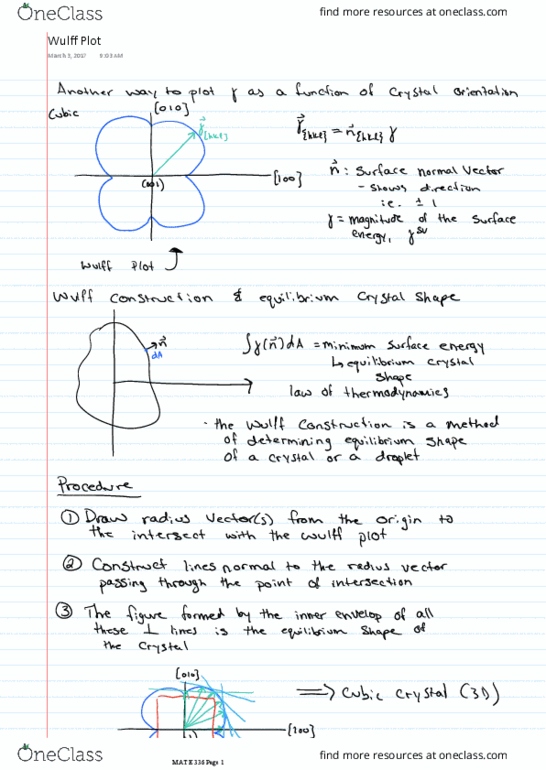 OneClass
find more resources at oneclass.com
Wulff Plot
March 3, 2017 9:03 AM
Another way to plot γ as a function of crystal orientation
Cubic
[010]
γ⃗{hkl}
[100]
(001)
γ⃗{hkl} = n⃗{hkl} γ
n⃗ : Surface normal vector
- shows direction
i.e. ± 1
γ = magnitude of the surface
energy, γˢᵛ
Wulff Plot
Wulff Construction & equilibrium Crystal Shape
n⃗
dA
∫γ(n⃗)dA = minimum surface energy
↳ equilibrium crystal
shape
law of thermodynamics
· the Wulff Construction is a method
of determining equilibrium shape
of a crystal or a droplet
Procedure
① Draw radius vector(s) from the origin to
the intersect with the wulff plot
② Construct lines normal to the radius vector
passing through the point of intersection
③ The figure formed by the inner envelop of all
these ⊥ lines is the equilibrium shape of
the crystal
[010]
⟹ Cubic crystal (3D)
[100]
OneClass
MATE 336 Page 1
find more resources at oneclass.com